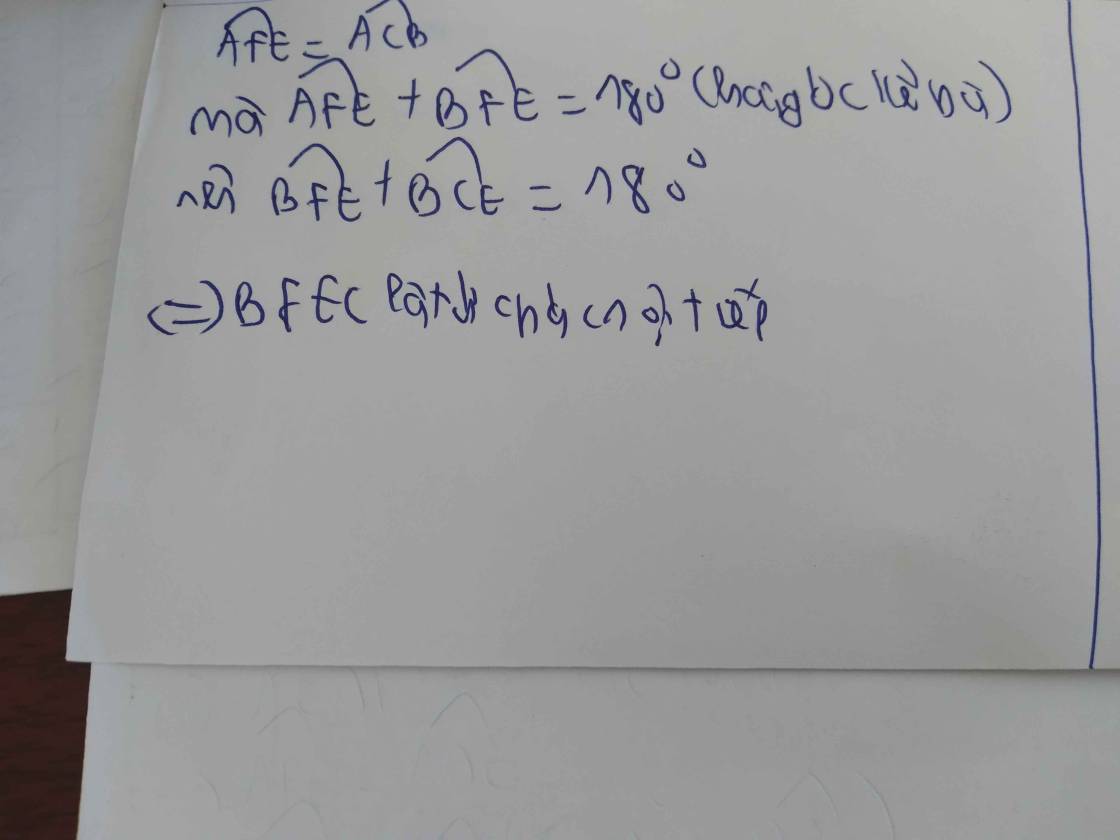 AFE = ACB
mà AFE + BFE = 180° (hai góc kề bù)
nên BFE + BCE = 180°
(=) BFEC là tứ giác nội tiếp